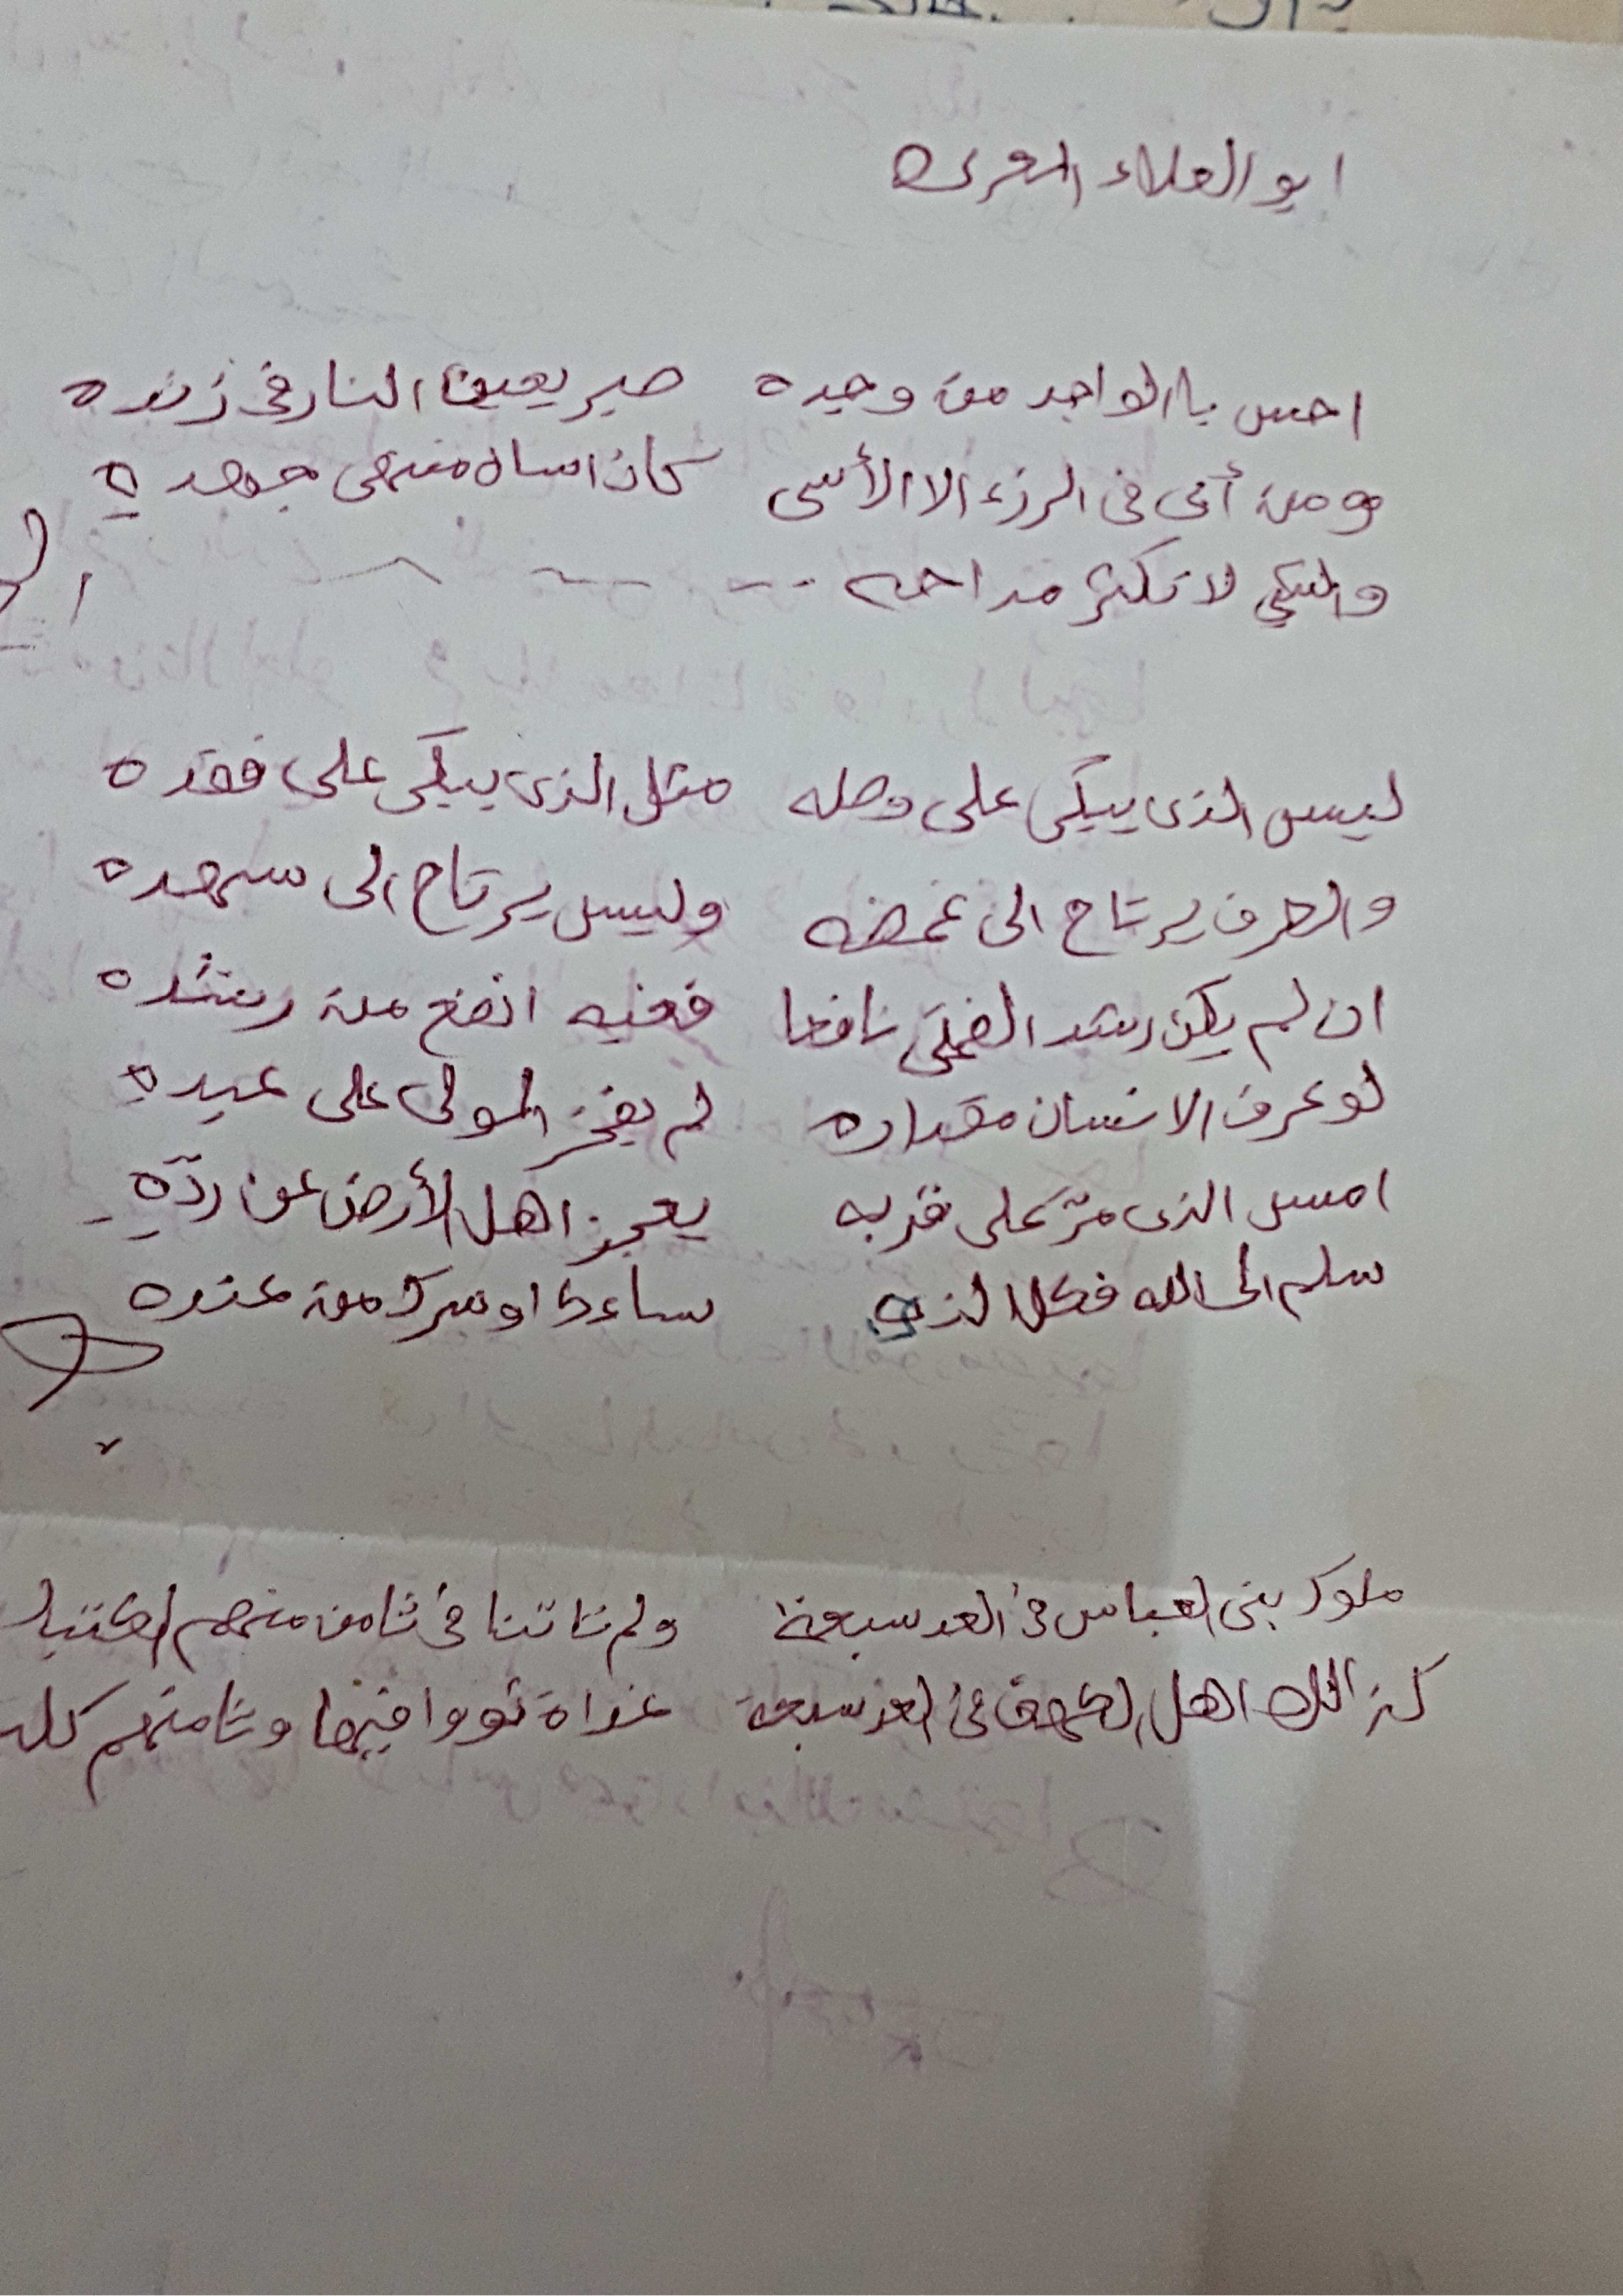 ابو العلاء المعرى
احسن باالواجد من وجده صبر يعيد النار فى زنده
ومن أبى فى الرزء الا الأسى كان اساه منتهى جهده
لا تكثر مداحه
ليس الذى يبكى على وصله مثل الذى يبكى على فقده
والطرف يرتاح الى غمضه وليس يرتاح الى سهده
ان لم يكن رشد الفتى نافعا فغيه انفع من رشده
لو عرف الانسان مقداره لم يفخر المولى على عبده
امس الذى مرّ على قربه يعجز اهل الأرض عن ردّه
سلم الى الله فكل الذى ساءك او سرك من عنده
ملوك بنى العباس فى العد سبعة ولم تاتنا فى ثامن منهم الكتب
كذالك اهل الكهف فى العد سبعة غداة ثووا فيها وثامنهم كلب